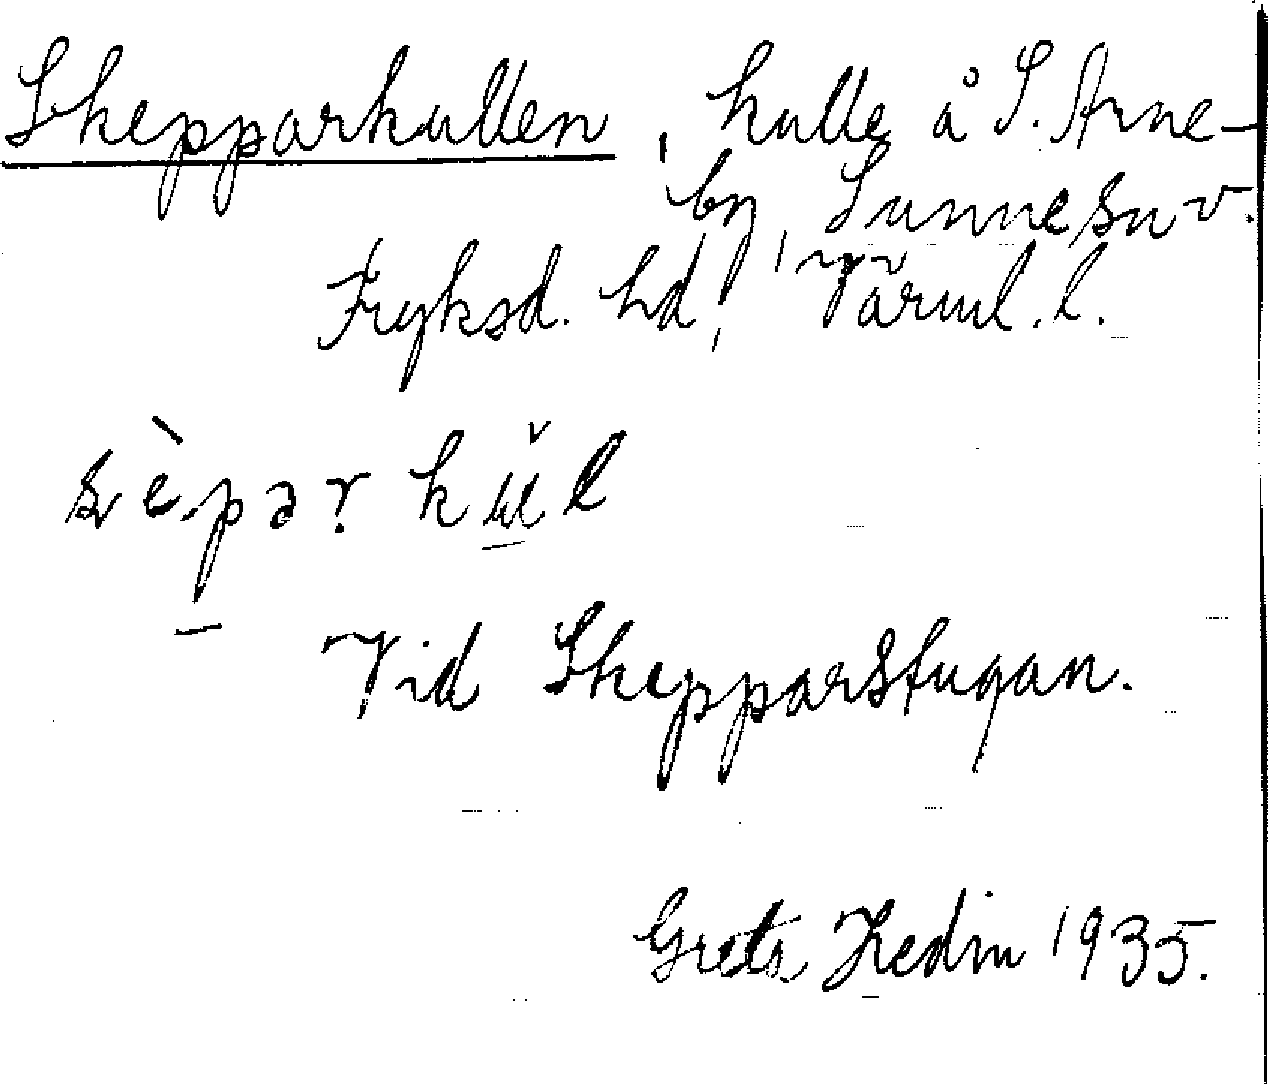 Skepparkullen, kulle å S. Arne-
by, Sunne snv.
Fryksd. hd, Värml. l.
Vid Skepparstugan.
Greta Hedin 1935.